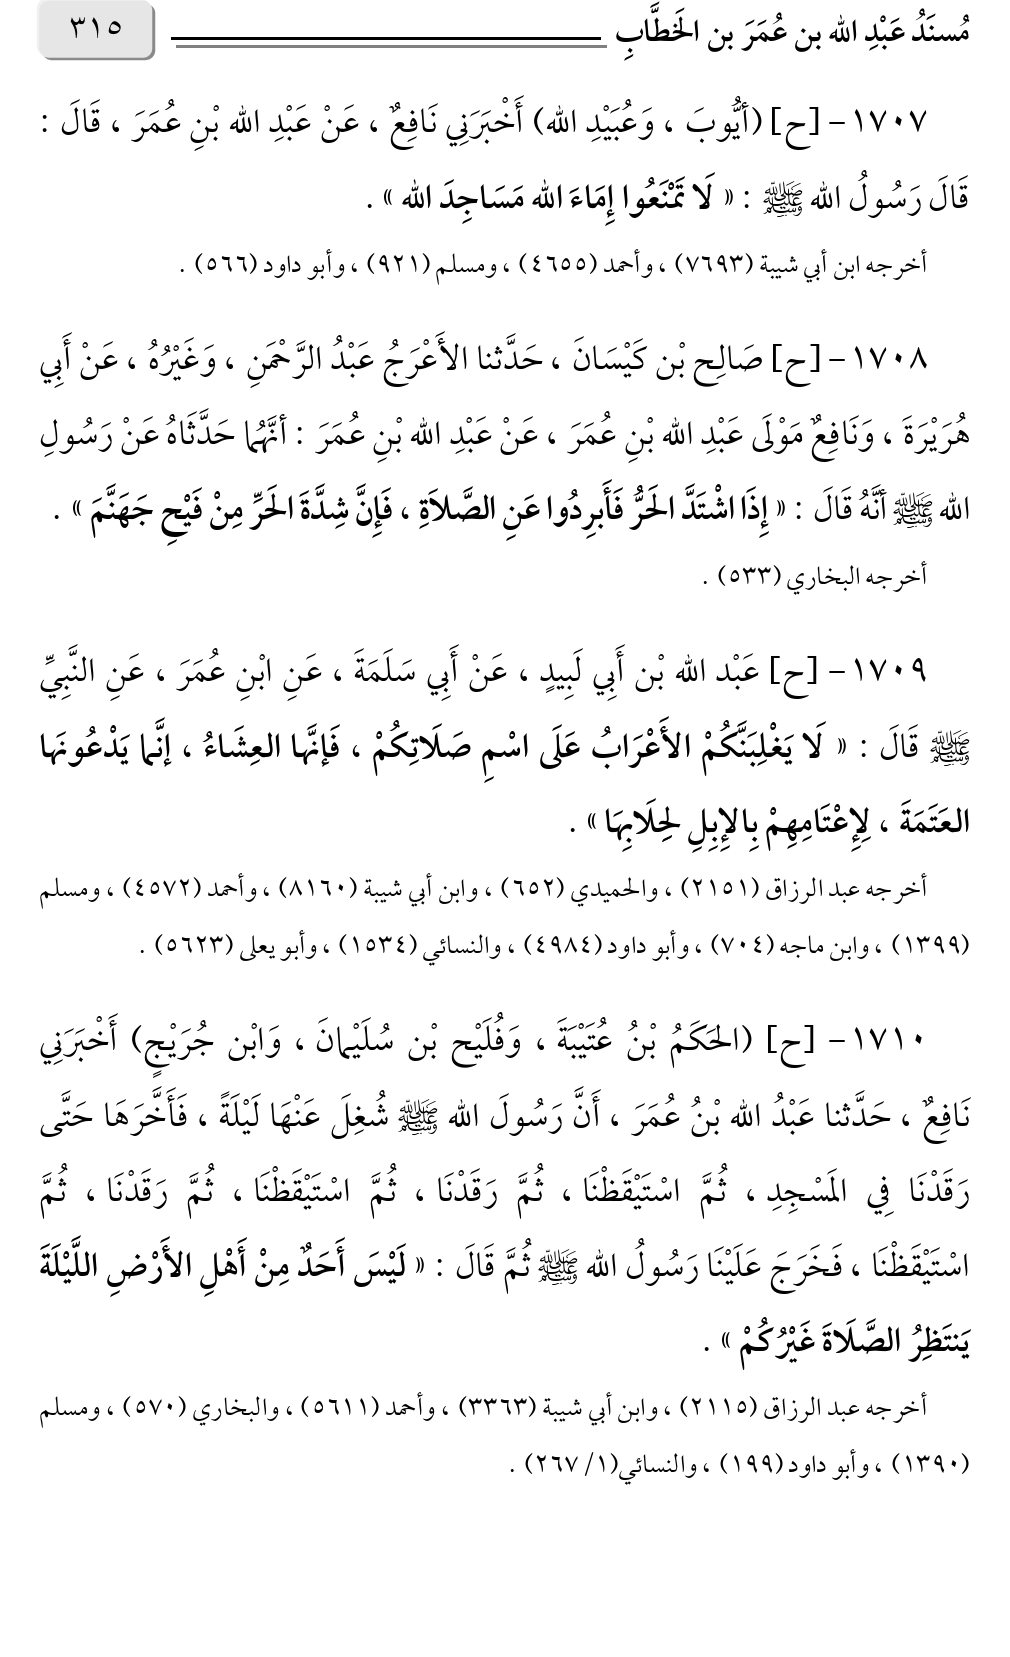 مُسنَدُ عَبْدِ الله بن عُمَرَ بن الخَطَّابِ ٣١٥
١٧٠٧ – [ح] (أيُّوبَ ، وَعُبَيْدِ الله) أَخْبَرَنِي نَافِعٌ ، عَنْ عَبْدِ الله بْنِ عُمَرَ ، قَالَ :
قَالَ رَسُولُ الله ﷺ : « لَا تَمْنَعُوا إِمَاءَ الله مَسَاجِدَ الله » .
أخرجه ابن أبي شيبة (٧٦٩٣) ، وأحمد (٤٦٥٥) ، ومسلم (٩٢١) ، وأبو داود (٥٦٦) .
١٧٠٨ – [ح] صَالِح بْن كَيْسَانَ ، حَدَّثنا الأَعْرَجُ عَبْدُ الرَّحْمَنِ ، وَغَيْرُهُ ، عَنْ أَبِي
هُرَيْرَةَ ، وَنَافِعٌ مَوْلَى عَبْدِ الله بْنِ عُمَرَ ، عَنْ عَبْدِ الله بْنِ عُمَرَ : أنَّهُما حَدَّثَاهُ عَنْ رَسُولِ
الله ﷺ أنَّهُ قَالَ : « إِذَا اشْتَدَّ الحَرُّ فَأَبرِدُوا عَنِ الصَّلاَةِ ، فَإِنَّ شِدَّةَ الحَرِّ مِنْ فَيْحِ جَهَنَّمَ » .
أخرجه البخاري (٥٣٣) .
١٧٠٩ – [ح] عَبْد الله بْن أَبِي لَبِيدٍ ، عَنْ أَبِي سَلَمَةَ ، عَنِ ابْنِ عُمَرَ ، عَنِ النَّبِيِّ
ﷺ قَالَ : « لَا يَغْلِبَنَّكُمْ الأَعْرَابُ عَلَى اسْمِ صَلَاتِكُمْ ، فَإنَّها العِشَاءُ ، إنَّما يَدْعُونَها
العَتَمَةَ ، لِإعْتَامِهِمْ بِالإِبِلِ لِحِلَابِهَا » .
أخرجه عبد الرزاق (٢١٥١) ، والحميدي (٦٥٢) ، وابن أبي شيبة (٨١٦٠) ، وأحمد (٤٥٧٢) ، ومسلم
(١٣٩٩) ، وابن ماجه (٧٠٤) ، وأبو داود (٤٩٨٤) ، والنسائي (١٥٣٤) ، وأبو يعلى (٥٦٢٣) .
١٧١٠ – [ح] (الحَكَمُ بْنُ عُتَيْبَةَ ، وَفُلَيْح بْن سُلَيْمانَ ، وَابْن جُرَيْجٍ) أَخْبَرَنِي
نَافِعٌ ، حَدَّثنا عَبْدُ الله بْنُ عُمَرَ ، أَنَّ رَسُولَ الله ﷺ شُغِلَ عَنْهَا لَيْلَةً ، فَأَخَّرَهَا حَتَّى
رَقَدْنَا فِي المَسْجِدِ ، ثُمَّ اسْتَيْقَظْنَا ، ثُمَّ رَقَدْنَا ، ثُمَّ اسْتَيْقَظْنَا ، ثُمَّ رَقَدْنَا ، ثُمَّ
اسْتَيْقَظْنَا ، فَخَرَجَ عَلَيْنَا رَسُولُ الله ﷺ ثُمَّ قَالَ : « لَيْسَ أَحَدٌ مِنْ أَهْلِ الأَرْضِ اللَّيْلَةَ
يَنتَظِرُ الصَّلَاةَ غَيْرُكُمْ » .
أخرجه عبد الرزاق (٢١١٥) ، وابن أبي شيبة (٣٣٦٣) ، وأحمد (٥٦١١) ، والبخاري (٥٧٠) ، ومسلم
(١٣٩٠) ، وأبو داود (١٩٩) ، والنسائي(١/ ٢٦٧) .